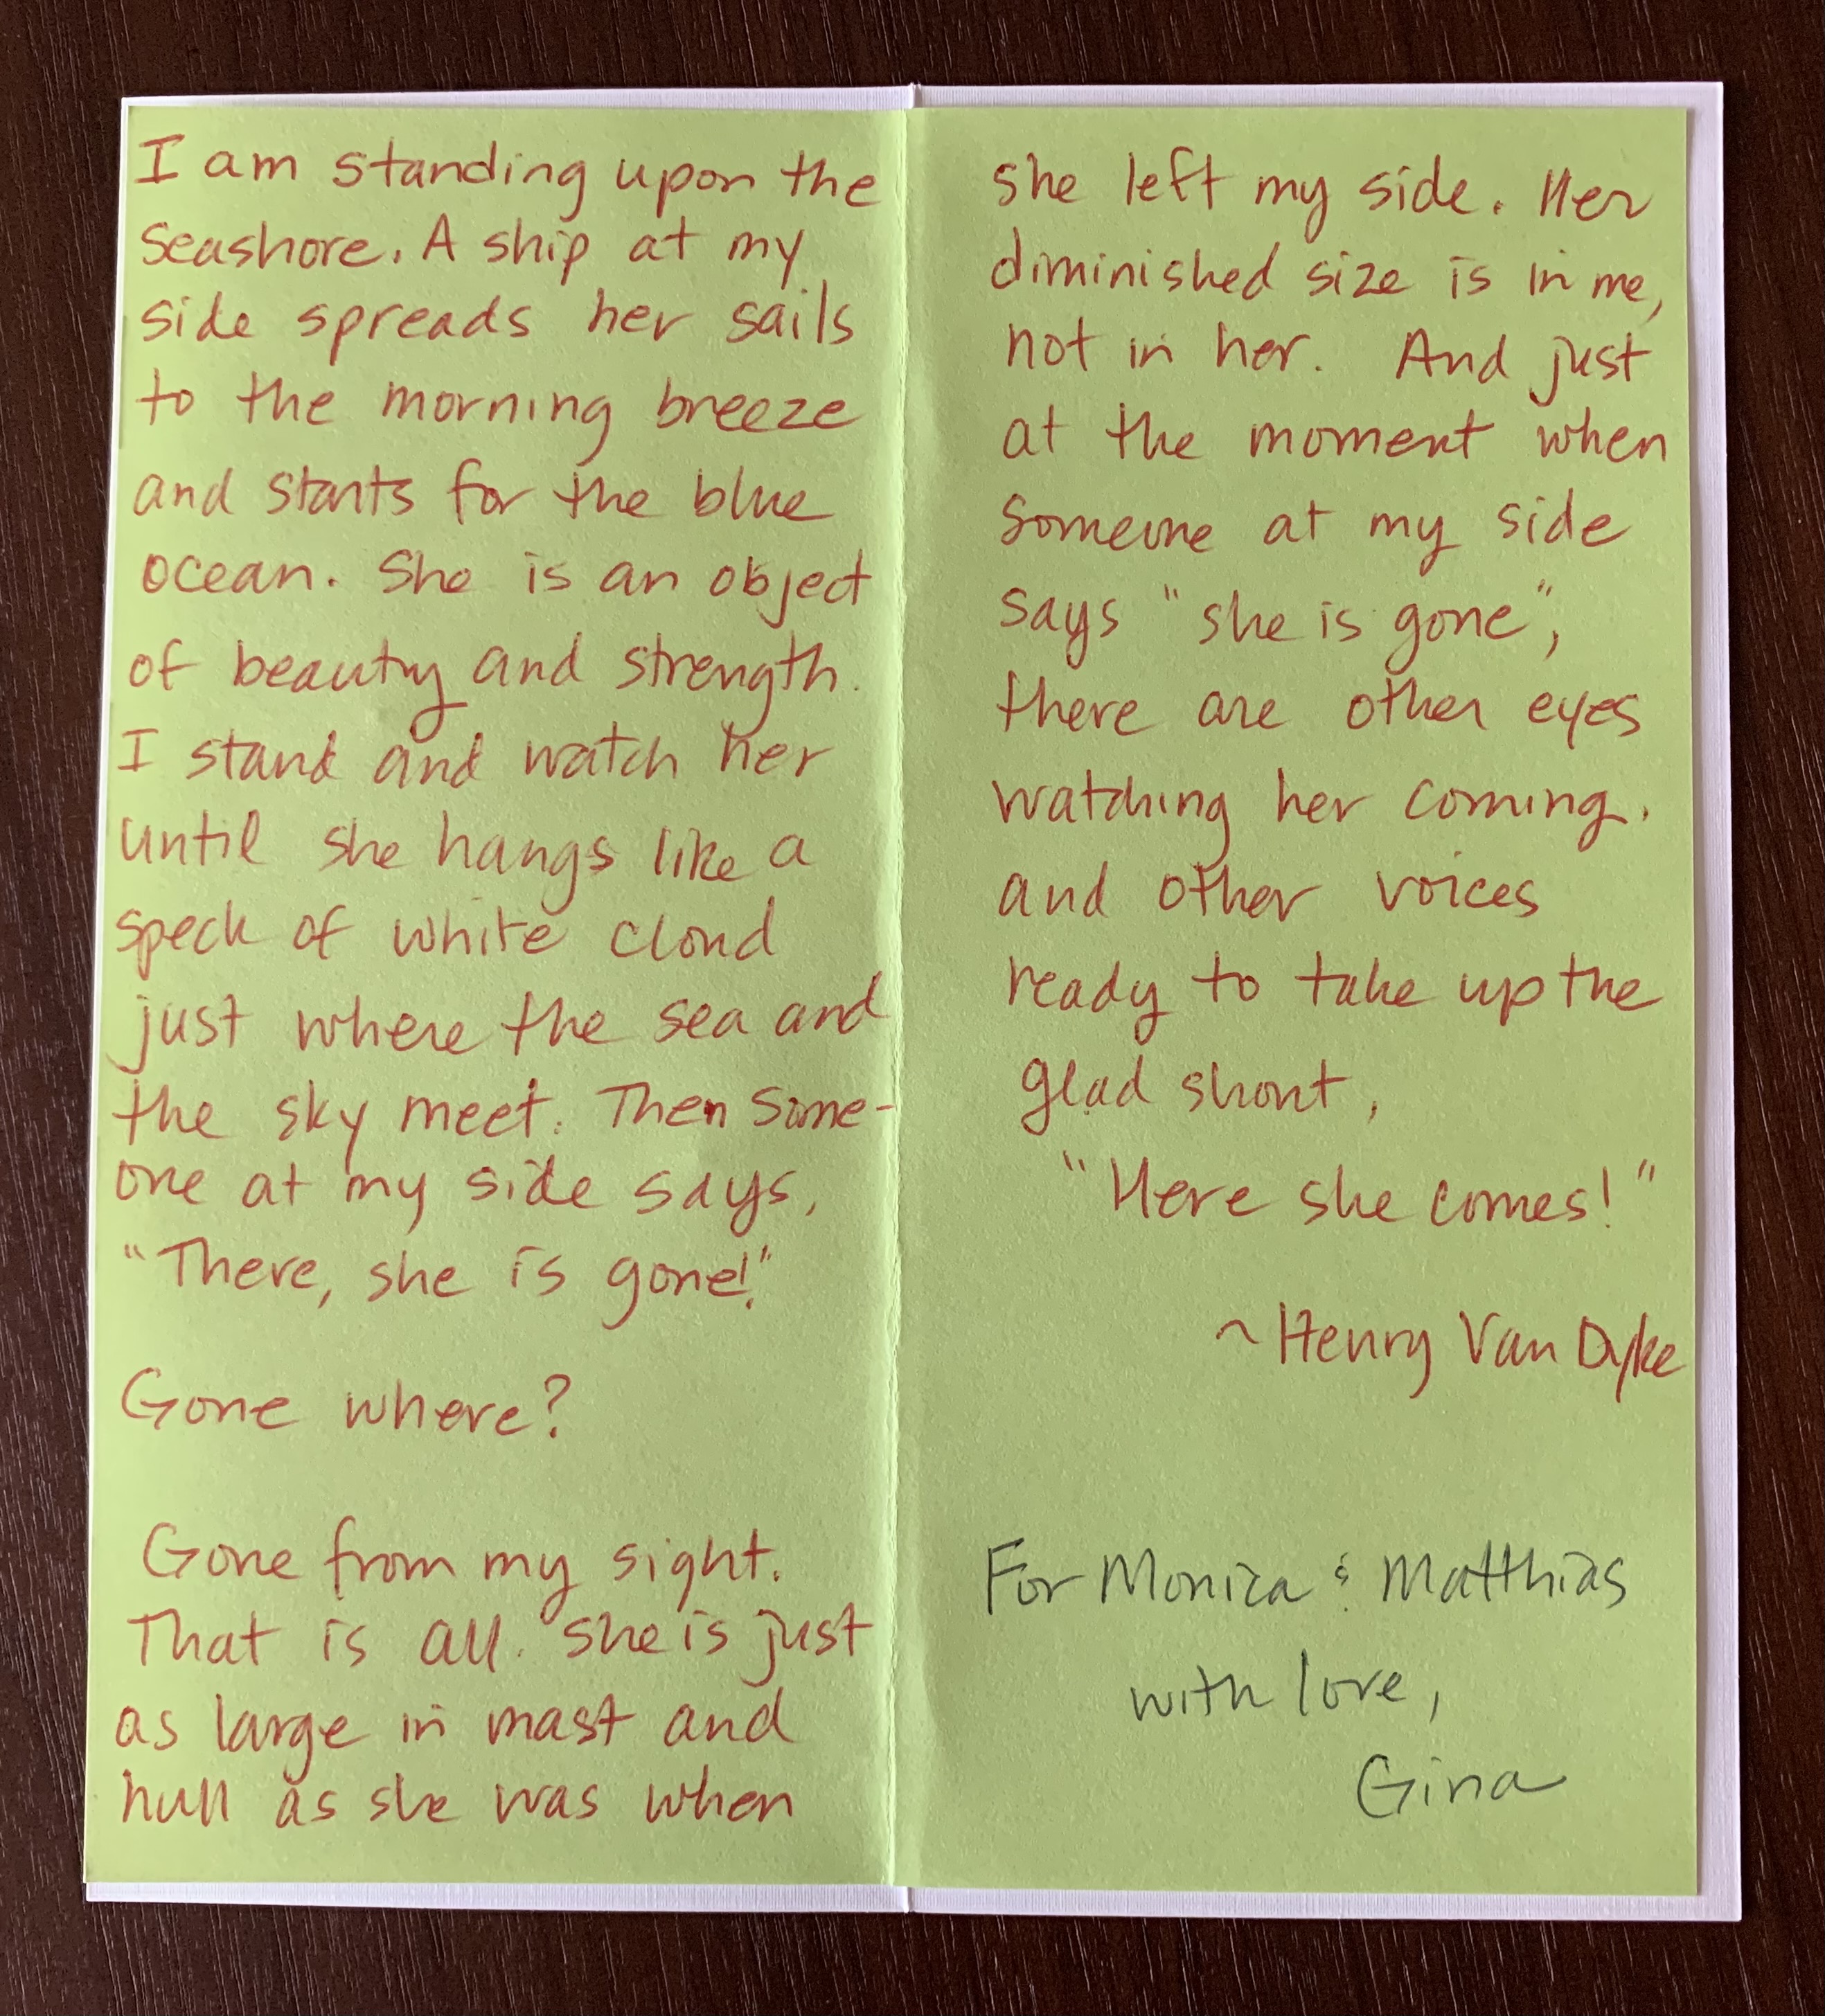 I am standing upon the
seashore. A ship at my
side spreads her sails
to the morning breeze
and starts for the blue
ocean. She is an object
of beauty and strength.
I stand and watch her
until she hangs like a
speck of white cloud
just where the sea and
the sky meet. Then some-
one at my side says,
"There, she is gone!"
Gone where?
Gone from my sight.
That is all. She is just
as large in mast and
hull as she was when
she left my side. Her
diminished size is in me,
not in her. And just
at the moment when
someone at my side
says "she is gone",
there are other eyes
watching her coming.
and other voices
ready to take up the
glad shout,
"Here she comes!"
~Henry Van Dyke
For Monica & Matthias
with love,
Gina